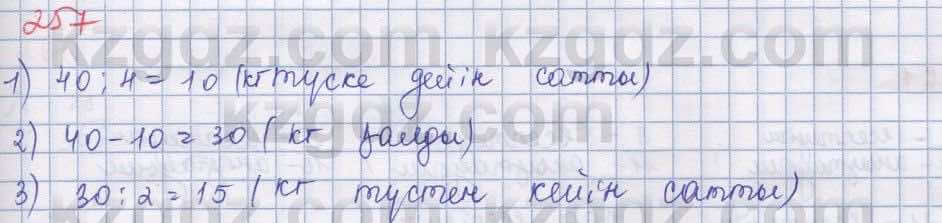 257
kzgdz.com kzgdz.com
1) 40 : 4 = 10 (кг түске дейін сатты)
2) 40 - 10 = 30 ( кг қалды)
3) 30 : 2 = 15 ( кг түстен кейін сатты)